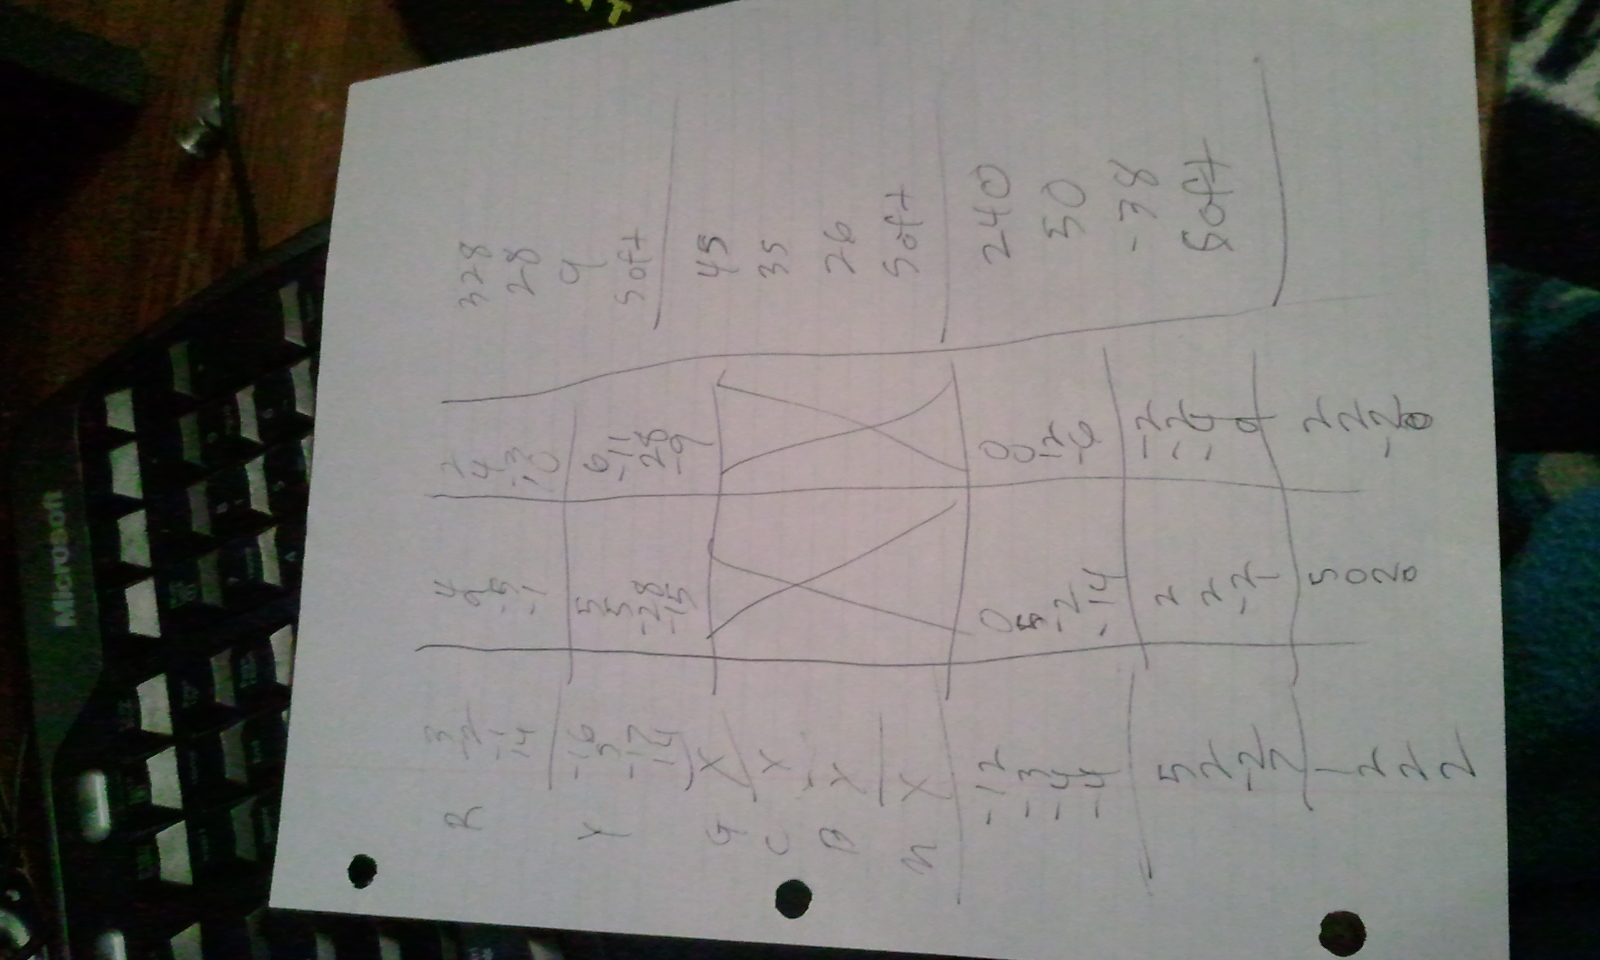 Microsoft
3 4 2
R -2 9 4 328
-1 -5 -3 28
14 -1 -10
9
Y -16 5 6
3 5 -11 Soft
-17 -28 28
14 -15 -9
G X 45
C X 35
B X 26
M X Soft
-12 0 0 240
-3 0
-4 -2 12 50
-4 -14 -6
-38
5 2 -2
2 2 -2 Soft
-2 -2 -4
1 5 2
2 0 2
2 2 -2
2 0